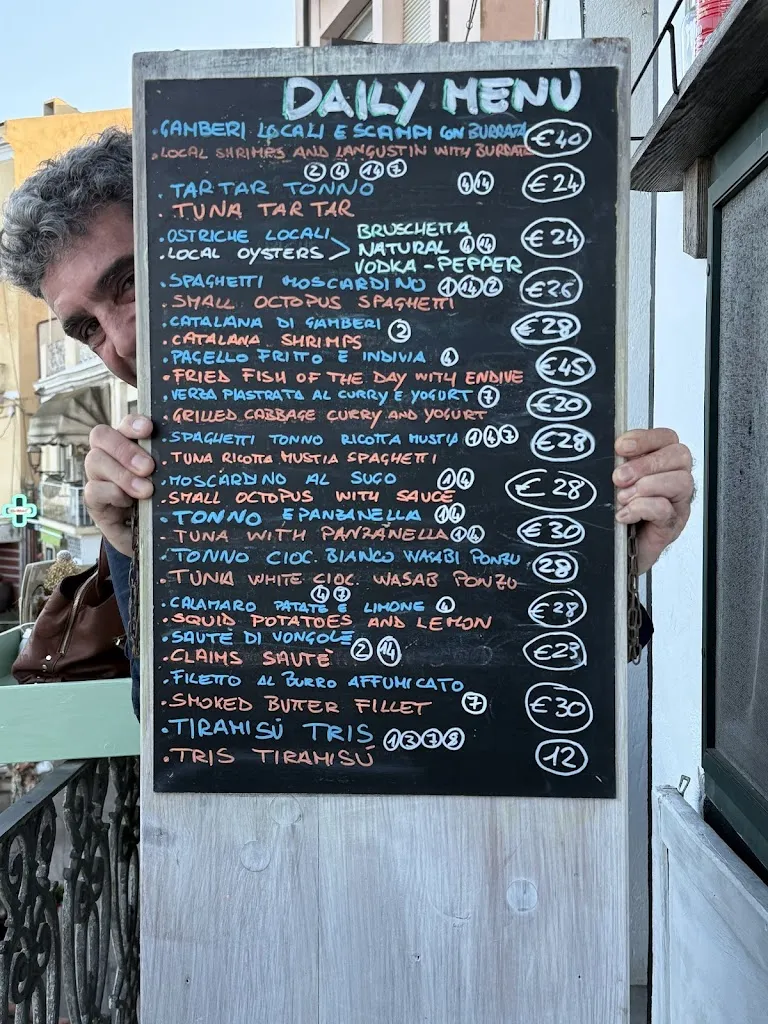 DAILY MENU
• GAMBERI LOCALI E SCAMPI CON BURRATA €40
• LOCAL SHRIMPS AND LANGUSTIN WITH BURRATA
2 4 14 7
• TARTAR TONNO 4 14 €24
• TUNA TARTAR
• OSTRICHE LOCALI
• LOCAL OYSTERS > BRUSCHETTA
NATURAL 4 14 €24
VODKA - PEPPER
• SPAGHETTI MOSCARDINO 1 14 2 €26
• SMALL OCTOPUS SPAGHETTI
• CATALANA DI GAMBERI 2 €28
• CATALANA SHRIMPS
• PAGELLO FRITTO E INDIVIA €45
• FRIED FISH OF THE DAY WITH ENDIVE
• VERZA PIASTRATA AL CURRY E YOGURT 7 €20
• GRILLED CABBAGE CURRY AND YOGURT
• SPAGHETTI TONNO RICOTTA MUSTIA 1 4 7 €28
• TUNA RICOTTA MUSTIA SPAGHETTI
• MOSCARDINO AL SUGO 14 €28
• SMALL OCTOPUS WITH SAUCE
• TONNO E PANZANELLA 14 €30
• TUNA WITH PANZANELLA 14
• TONNO CIOC. BIANCO WASABI PONZU 28
• TUNA WHITE CIOC. WASAB PONZU
4 7
• CALAMARO PATATE E LIMONE 4 €28
• SQUID POTATOES AND LEMON
• SAUTÈ DI VONGOLE 2 14 €23
• CLAIMS SAUTÈ
• FILETTO AL BURRO AFFUMICATO
• SMOKED BUTTER FILLET 7 €30
• TIRAMISÚ TRIS 1 3 7 8
• TRIS TIRAMISÚ 12